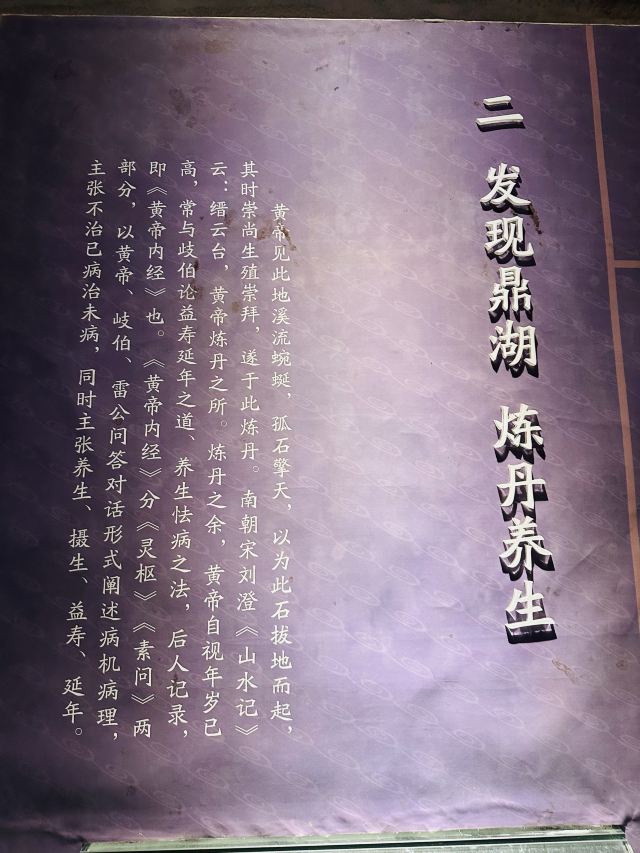 二 发现鼎湖 炼丹养生
黄帝见此地溪流蜿蜒，孤石擎天，以为此石拔地而起，
其时崇尚生殖崇拜，遂于此炼丹。南朝宋刘澄《山水记》
云：缙云台，黄帝炼丹之所。炼丹之余，黄帝自视年岁已
高，常与歧伯论益寿延年之道、养生怯病之法，后人记录，
即《黄帝内经》也。《黄帝内经》分《灵枢》《素问》两
部分，以黄帝、歧伯、雷公问答对话形式阐述病机病理，
主张不治已病治未病，同时主张养生、摄生、益寿、延年。